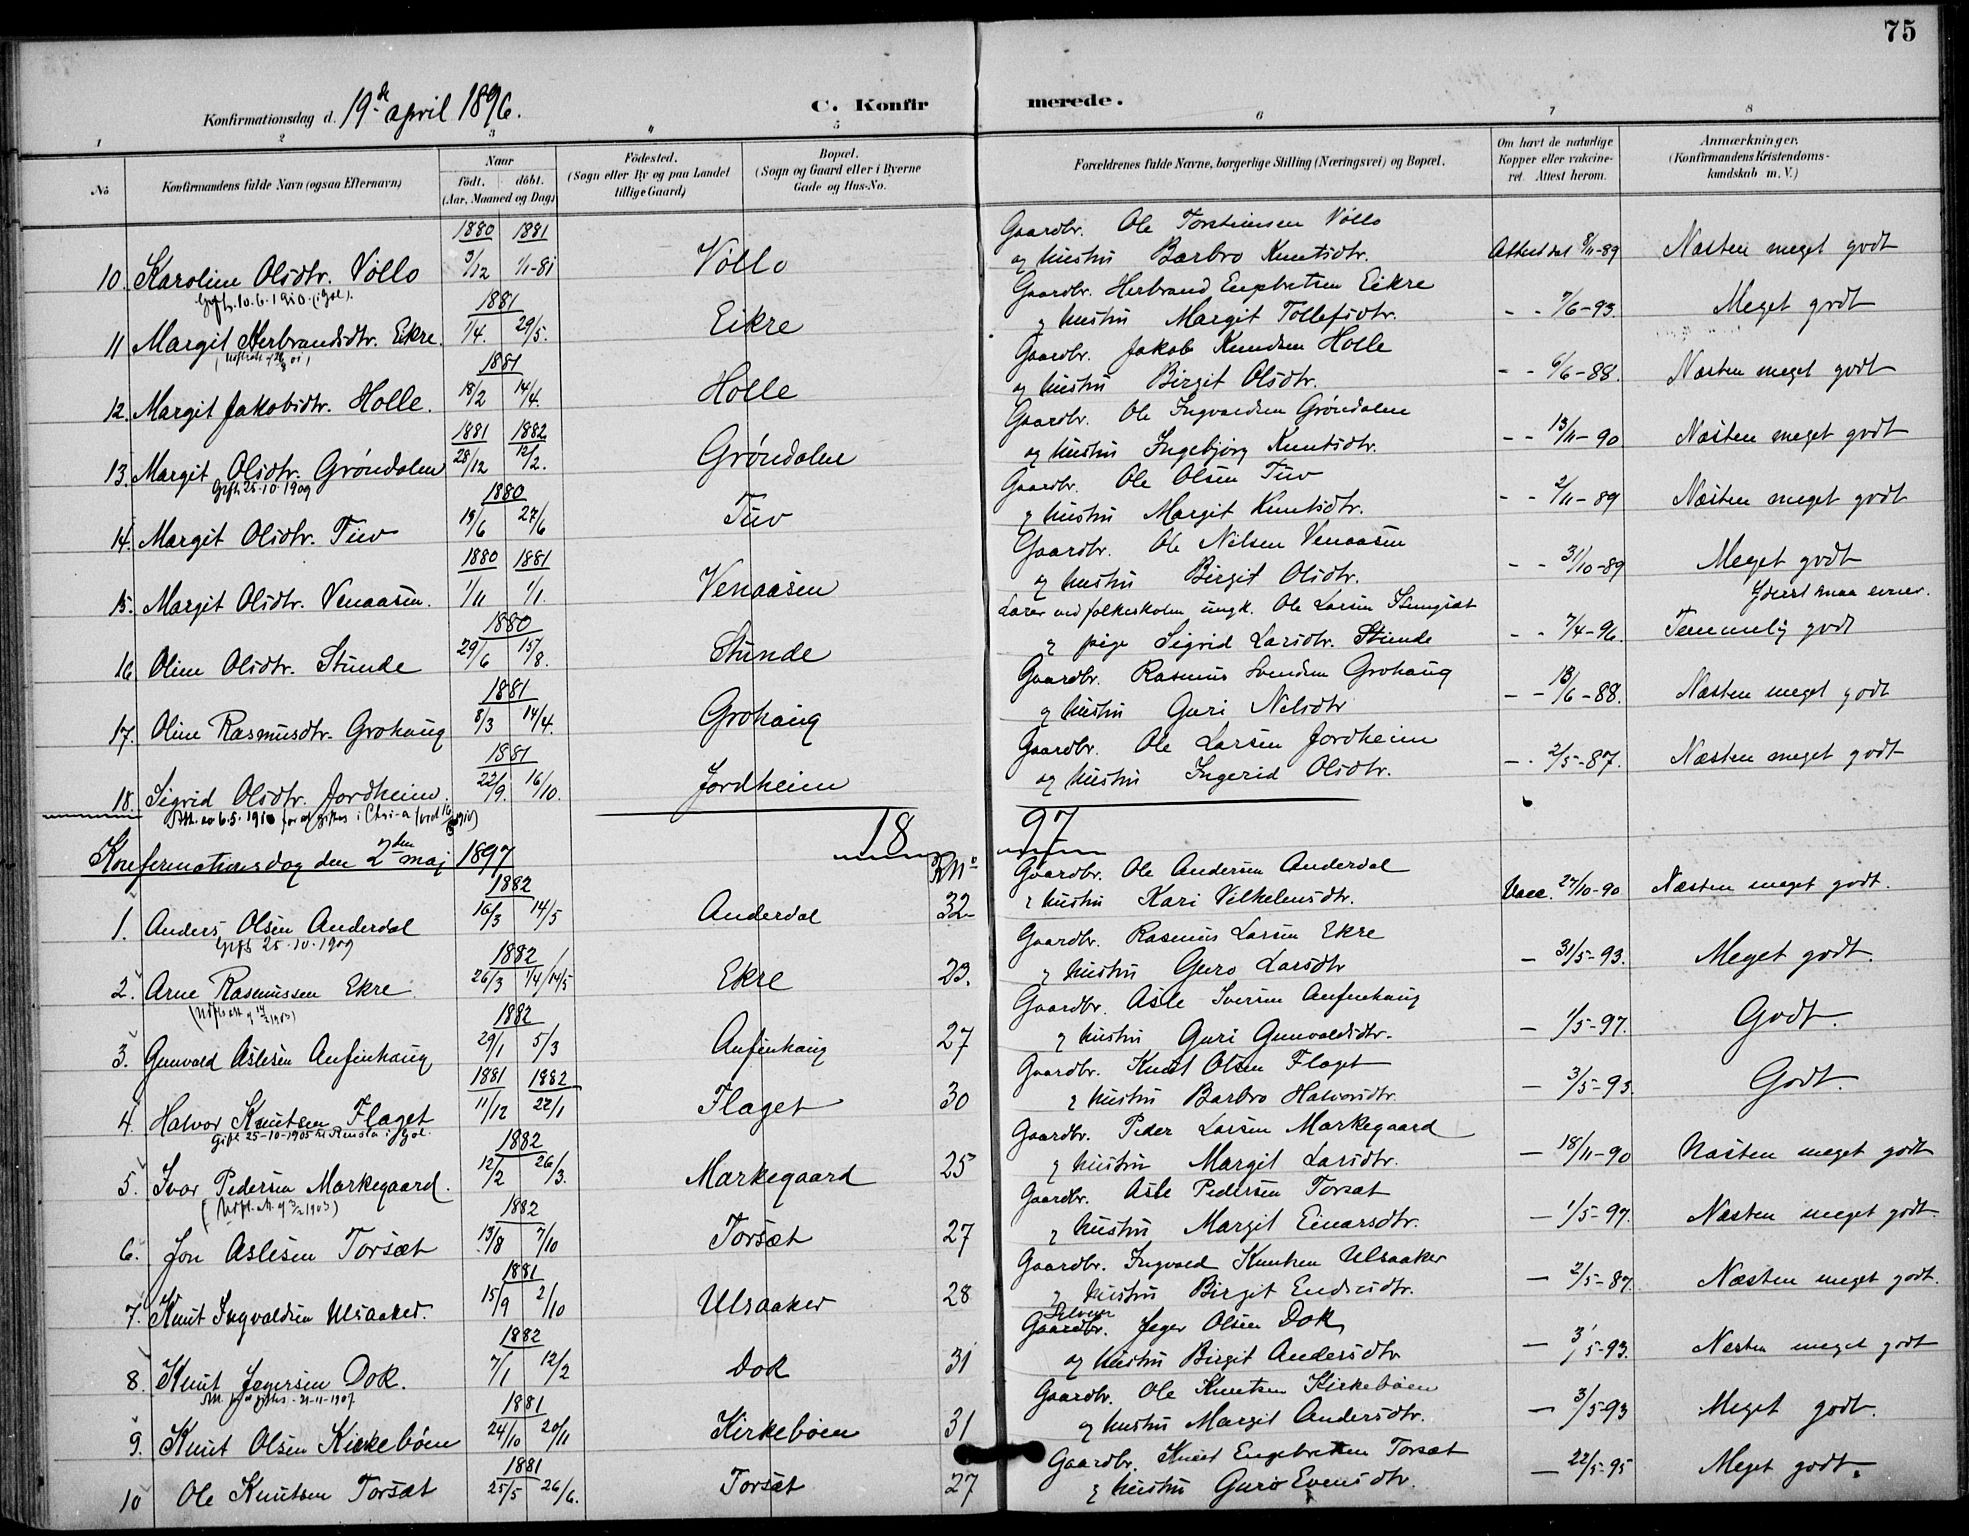 75
Konfirmationsdag d. 19de april 1896.
C. Konfirmerede.
1 2 3 4 5 6 7 8
No
Konfirmandens fulde Navn (ogsaa Efternavn)
Naar
født. døbt.
(Aar, Maaned og Dag)
Fødested.
(Sogn eller By og paa Landet
tillige Gaard)
Bopæl.
(Sogn og Gaard eller i Byerne
Gade og Hus-No.
Forældrenes fulde Navne, borgerlige Stilling (Næringsvei) og Bopæl.
Om havt de naturlige
Kopper eller vakcine-
ret. Attest herom.
Anmærkninger.
(Konfirmandens Kristendoms-
kundskab m. V.)
1880 1881 Gaardbr. Ole Torsteinsen Vøllo
10. Karoline Olsdtr. Vøllo 3/12 1/1-81 Vøllo og hustru Barbro Knutsdtr. Attest dat 8/11-89 Næsten meget godt
Gift 10.6.1910 (i Gol).
1881 Gaardbr. Herbrand Engbretsen Eikre
11 Margit Herbrandsdtr. Ekre. 1/4. 29/5. Eikre og hustru Margit Tollefsdtr. - - 7/6-93. Meget godt
1881 Gaardbr. Jakob Knudsen Holle
12. Margit Jakobsdtr. Holle. 18/2 14/4. Holle og hustru Birgit Olsdtr. - - 6/6-88. Næsten meget godt
1881 1882 Gaardbr. Ole Ingvaldsen Grøndalen
13. Margit Olsdtr. Grøndalen 28/12 12/2. Grøndalen og hustru Ingebjørg Knutsdtr. - - 13/11-90 Næsten meget godt
Gift 25-10-1909
1880 Gaardbr. Ole Olsen Tuv
14. Margit Olsdtr. Tuv 19/6 27/6 Tuv og hustru Margit Knutsdtr. - - 2/11-89 Næsten meget godt
1880 1881 Gaardbr. Ole Nilsen Venaasen
15. Margit Olsdtr. Venaasen. 1/11 1/1. Venaasen og hustru Birgit Olsdtr. - - 31/10-89 Meget godt
1880 Lærer ved folkeskolen ungk. Ole Larsen Yderst smaa evner.
16 Oline Olsdtr. Stunde 29/6 15/8. Stunde og pige Sigrid Larsdtr. Stunde - - 7/4-96. Temmelig godt
1881 Gaardbr. Rasmus Svendsen Grohaug
17. Oline Rasmusdtr. Grohaug 8/3 14/4. Grohaug og hustru Guri Nilsdtr - - 13/6-88. Næsten meget godt
1881 Gaardbr. Ole Larsen Jordheim
18. Sigrid Olsdtr. Jordheim. 22/9. 16/10. Jordheim og hustru Ingerid Olsdtr. - - 2/5-87. Næsten meget godt
18 97
Konfirmationsdag den 2den maj 1897
1882 Gaardbr. Ole Andersen Anderdal
1. Anders Olsen Anderdal 16/3 14/5 Anderdal 32 og hustru Kari Vilhelmsdtr. Vacc. 27/10-90 Næsten meget godt.
Gift 25.10.1909
1882 Gaardbr. Rasmus Larsen Ekre
2. Arne Rasmussen Ekre 26/3 1/4/14/5 Ekre 23. og hustru Guro Larsdtr - 31/5-93. Meget godt.
1882 Gaardbr. Asle Iversen Anfinhaug
3. Gunvald Aslesen Anfinhaug 29/1 5/3 Anfinhaug 27 og hustru Guri Gunvaldsdtr. - 1/5-97. Godt.
1881 1882 Gaardbr. Knut Olsen Flaget
4. Halvor Knutsen Flaget 11/12 22/1 Flaget 30 og hustru Barbro Halvorsdtr. - 3/5-93. Godt.
1882 Gaardbr. Peder Larsen Markegaard
5. Ivar Pedersen Markegaard. 12/2 26/3. Markegaard 25 og hustru Margit Larsdtr. - 18/11-90 Næsten meget godt
1882 Gaardbr. Asle Pedersen Torsæt
6. Jon Aslesen Torsæt 13/8 7/10 Torsæt 27 og hustru Margit Einarsdtr. - 1/5-97. Næsten meget godt.
1881 Gaardbr. Ingvald Knutsen Ulsaaker
7. Knut Ingvaldsen Ulsaaker. 15/9 2/10 Ulsaaker 28 og hustru Birgit Endresdtr. - 2/5-87. Næsten meget godt.
Selveier
1882 Gaardbr. Jeger Olsen Dok
8. Knut Jegersen Dok. 7/1 12/2 Dok 31 og hustru Birgit Andersdtr - 3/5-93. Næsten meget godt
1881 Gaardbr. Ole Knutsen Kirkebøen
9. Knut Olsen Kirkebøen 24/10 20/11 Kirkebøen 31 og hustru Margit Andersdtr. - 3/5-93 Meget godt.
1881 Gaardbr. Knut Engebretsen Torsæt
10 Ole Knutsen Torsæt 25/5 26/6. Torsæt 27 og hustru Guro Evensdtr. - 22/5-95 Meget godt.